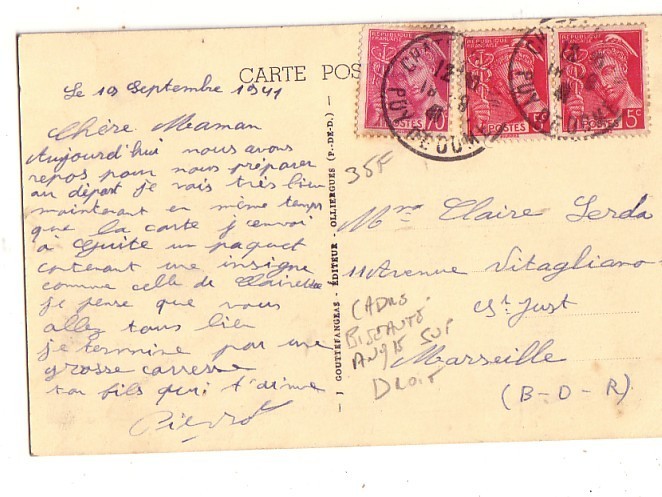 CARTE POS
Le 19 Septembre 1941
Chère Maman
Aujourd'hui nous avons
repos pour nous préparer
au départ je vais très bien
maintenant en même temps
que la carte j'envoi
a Guite un paquet
contenant une insigne
comme celle de Clairette
je pense que vous
allez tous bien
je termine par une
grosse caresse
ton fils qui t'aime
Pierrot
J GOUTTEFANGEAS - ÉDITEUR - OLLIERGUES (P.-DE-D.)
REPUBLIQUE FRANÇAISE
POSTES 70
REPUBLIQUE FRANÇAISE
POSTES 5c
REPUBLIQUE FRANÇAISE
POSTES 5c
PUY DE DOME
PUY DE DOME
35F
Mme Claire Lerda
11 Avenue Vitagliano
St Just
Marseille
(B-D-R)
CADRE
BISEAUTÉ
ANGLE SUP
DROIT